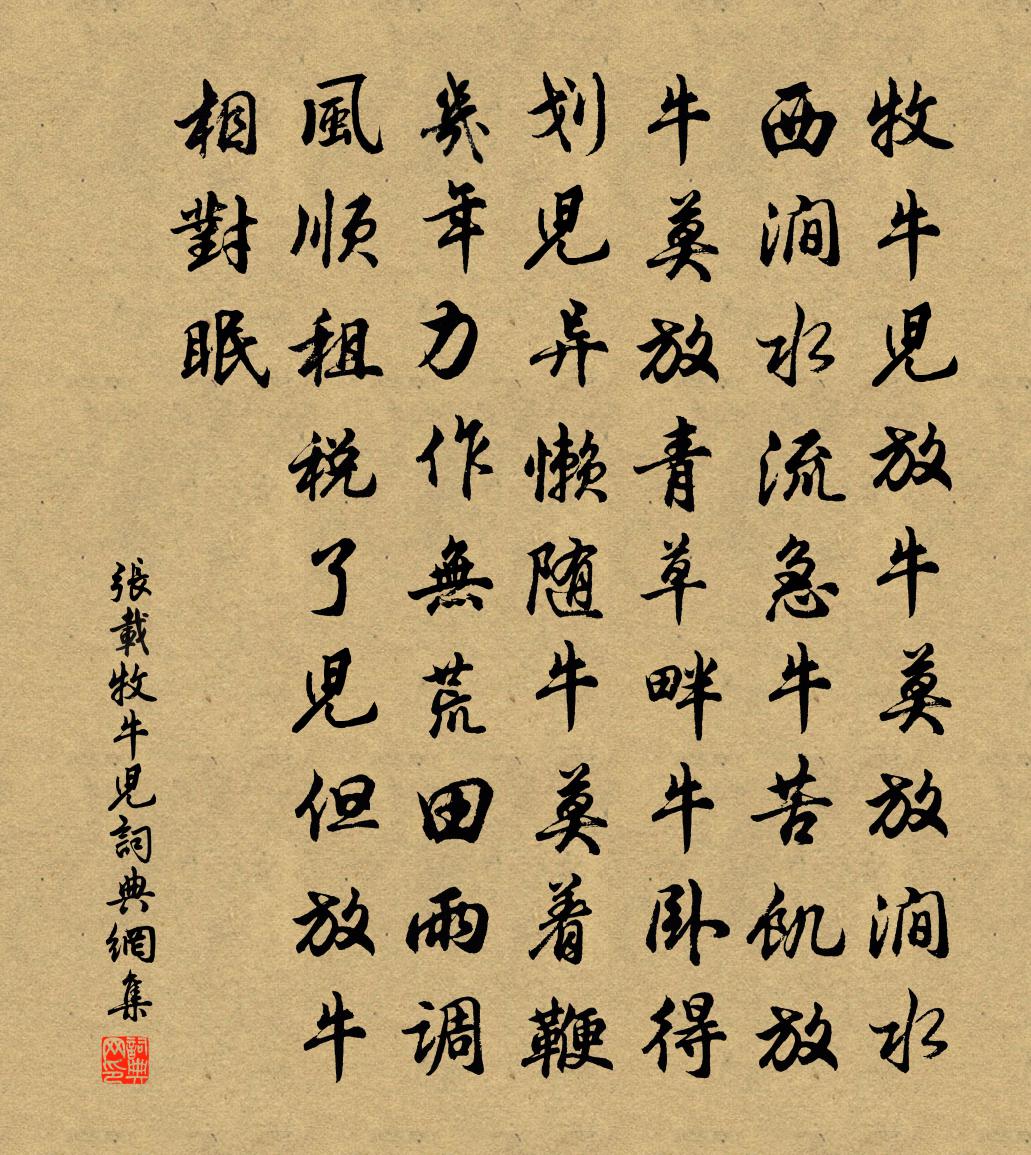 牧牛兒放牛莫放澗水
西澗水流急牛苦飢放
牛莫放青草畔牛卧得
划兒异懶随牛莫着鞭
幾年力作無荒田雨調
風順租税了兒但放牛
相對眠
張載牧牛兒詞典網集
詞典网印